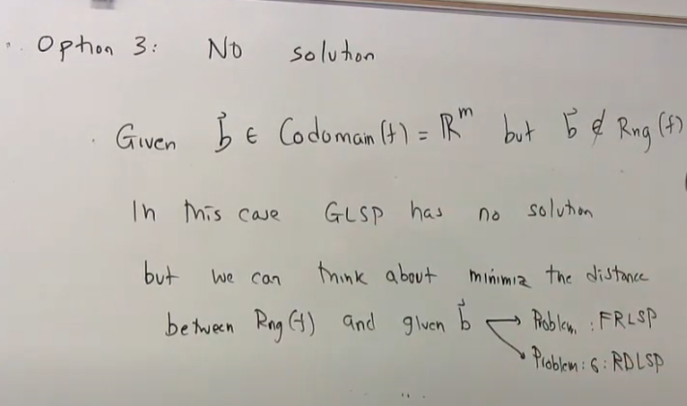 Option 3: No solution
Given b⃗ ∈ Codomain(f) = ℝᵐ but b⃗ ∉ Rng(f)
In this case GLSP has no solution
but we can think about minimiz the distance
between Rng(f) and given b⃗ → Problem : FRLSP
→ Problem: 6: RDLSP